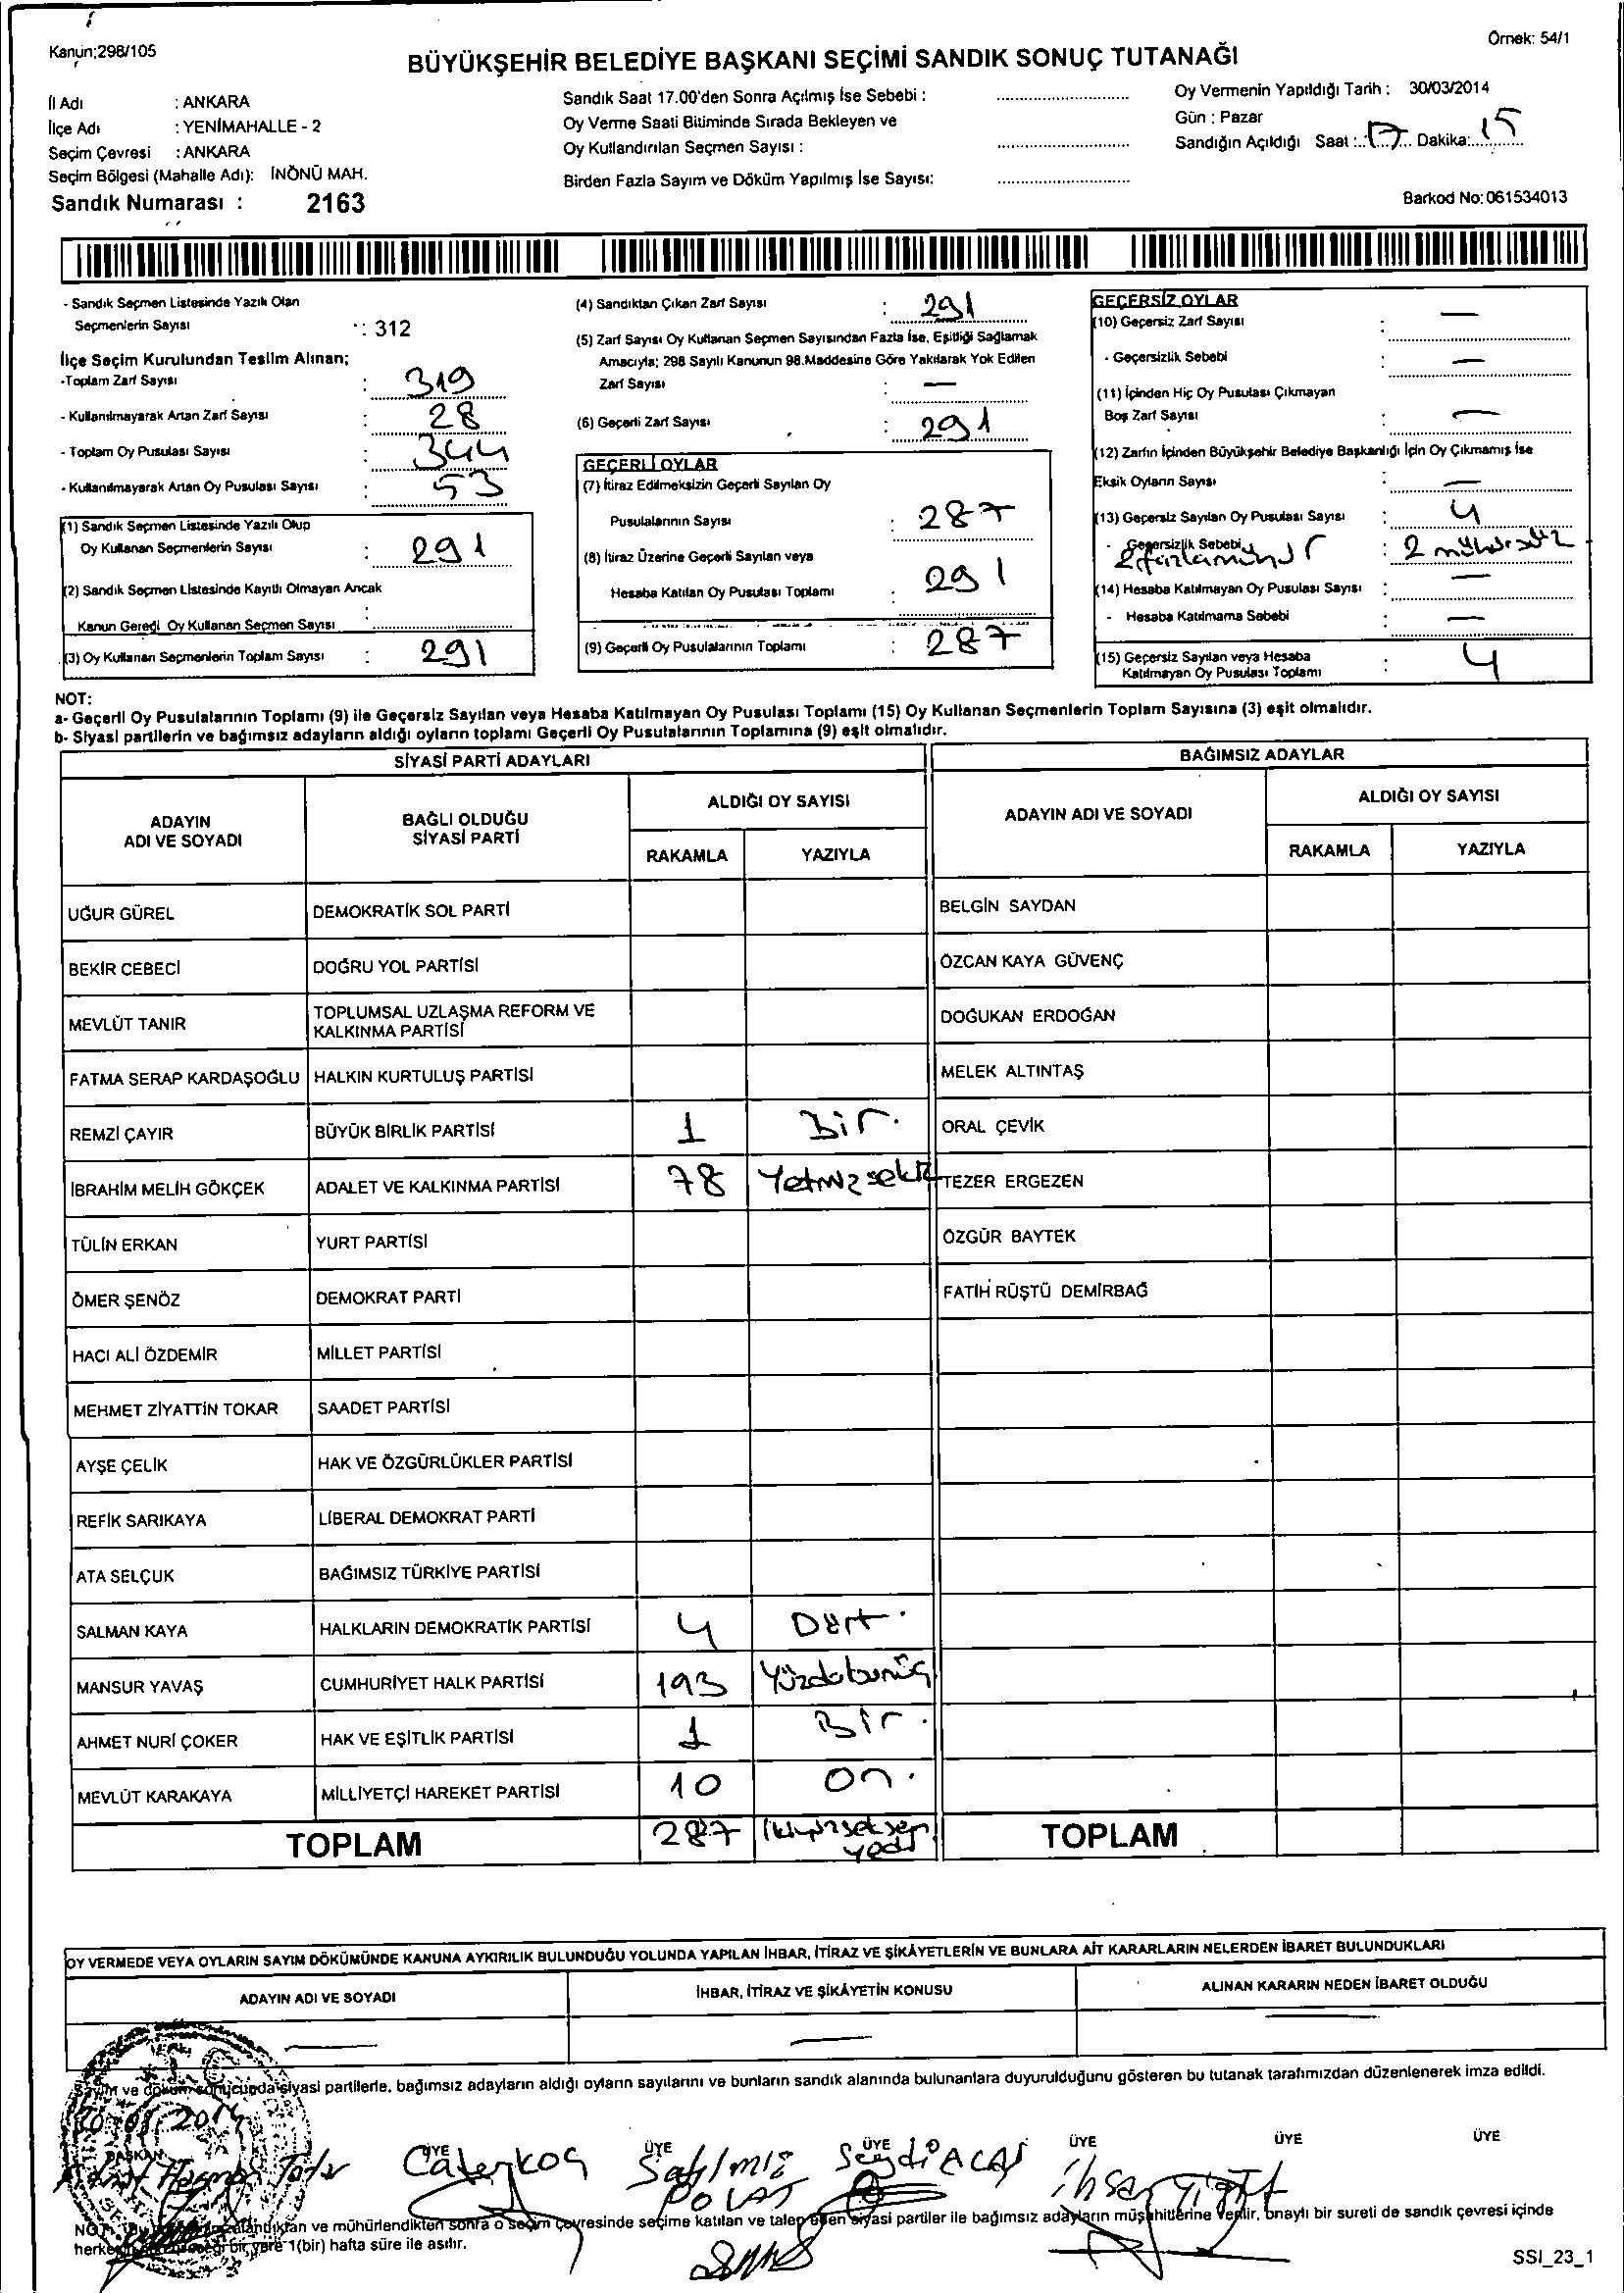 Kanun;298/105
Örnek: 54/1
BÜYÜKŞEHİR BELEDİYE BAŞKANI SEÇİMİ SANDIK SONUÇ TUTANAĞI
İl Adı : ANKARA
İlçe Adı : YENİMAHALLE - 2
Seçim Çevresi : ANKARA
Seçim Bölgesi (Mahalle Adı): İNÖNÜ MAH.
Sandık Numarası : 2163
Sandık Saat 17.00'den Sonra Açılmış İse Sebebi :
Oy Verme Saati Bitiminde Sırada Bekleyen ve
Oy Kullandırılan Seçmen Sayısı :
Birden Fazla Sayım ve Döküm Yapılmış İse Sayısı:
Oy Vermenin Yapıldığı Tarih : 30/03/2014
Gün : Pazar
Sandığın Açıldığı Saat : 17 Dakika: 15
Barkod No: 061534013
- Sandık Seçmen Listesinde Yazılı Olan
Seçmenlerin Sayısı : 312
İlçe Seçim Kurulundan Teslim Alınan;
-Toplam Zarf Sayısı : 319
- Kullanılmayarak Artan Zarf Sayısı : 28
- Toplam Oy Pusulası Sayısı : 344
- Kullanılmayarak Artan Oy Pusulası Sayısı : 53
(1) Sandık Seçmen Listesinde Yazılı Olup
Oy Kullanan Seçmenlerin Sayısı : 291
(2) Sandık Seçmen Listesinde Kayıtlı Olmayan Ancak
Kanun Gereği Oy Kullanan Seçmen Sayısı :
(3) Oy Kullanan Seçmenlerin Toplam Sayısı : 291
(4) Sandıktan Çıkan Zarf Sayısı : 291
(5) Zarf Sayısı Oy Kullanan Seçmen Sayısından Fazla İse, Eşitliği Sağlamak
Amacıyla; 298 Sayılı Kanunun 98.Maddesine Göre Yakılarak Yok Edilen
Zarf Sayısı : —
(6) Geçerli Zarf Sayısı : 291
GEÇERLİ OYLAR
(7) İtiraz Edilmeksizin Geçerli Sayılan Oy
Pusulalarının Sayısı : 287
(8) İtiraz Üzerine Geçerli Sayılan veya
Hesaba Katılan Oy Pusulası Toplamı : 291
(9) Geçerli Oy Pusulalarının Toplamı : 287
GEÇERSİZ OYLAR
(10) Geçersiz Zarf Sayısı : —
- Geçersizlik Sebebi : —
(11) İçinden Hiç Oy Pusulası Çıkmayan
Boş Zarf Sayısı : —
(12) Zarfın İçinden Büyükşehir Belediye Başkanlığı İçin Oy Çıkmamış İse
Eksik Oyların Sayısı : —
(13) Geçersiz Sayılan Oy Pusulası Sayısı : 4
- Geçersizlik Sebebi : 2 mühürsüz
(14) Hesaba Katılmayan Oy Pusulası Sayısı : —
- Hesaba Katılmama Sebebi : —
(15) Geçersiz Sayılan veya Hesaba
Katılmayan Oy Pusulası Toplamı : 4
NOT:
a- Geçerli Oy Pusulalarının Toplamı (9) ile Geçersiz Sayılan veya Hesaba Katılmayan Oy Pusulası Toplamı (15) Oy Kullanan Seçmenlerin Toplam Sayısına (3) eşit olmalıdır.
b- Siyasi partilerin ve bağımsız adayların aldığı oyların toplamı Geçerli Oy Pusulalarının Toplamına (9) eşit olmalıdır.
SİYASİ PARTİ ADAYLARI
ADAYIN
ADI VE SOYADI
BAĞLI OLDUĞU
SİYASİ PARTİ
ALDIĞI OY SAYISI
RAKAMLA YAZIYLA
UĞUR GÜREL DEMOKRATİK SOL PARTİ
BEKİR CEBECİ DOĞRU YOL PARTİSİ
MEVLÜT TANIR TOPLUMSAL UZLAŞMA REFORM VE
KALKINMA PARTİSİ
FATMA SERAP KARDAŞOĞLU HALKIN KURTULUŞ PARTİSİ
REMZİ ÇAYIR BÜYÜK BİRLİK PARTİSİ 1 Bir.
İBRAHİM MELİH GÖKÇEK ADALET VE KALKINMA PARTİSİ 78 Yetmişsekiz
TÜLİN ERKAN YURT PARTİSİ
ÖMER ŞENÖZ DEMOKRAT PARTİ
HACI ALİ ÖZDEMİR MİLLET PARTİSİ
MEHMET ZİYATTİN TOKAR SAADET PARTİSİ
AYŞE ÇELİK HAK VE ÖZGÜRLÜKLER PARTİSİ
REFİK SARIKAYA LİBERAL DEMOKRAT PARTİ
ATA SELÇUK BAĞIMSIZ TÜRKİYE PARTİSİ
SALMAN KAYA HALKLARIN DEMOKRATİK PARTİSİ 4 Dört.
MANSUR YAVAŞ CUMHURİYET HALK PARTİSİ 193 Yüzdoksanüç
AHMET NURİ ÇOKER HAK VE EŞİTLİK PARTİSİ 1 Bir.
MEVLÜT KARAKAYA MİLLİYETÇİ HAREKET PARTİSİ 10 On.
TOPLAM 287 İkiyüzseksen
yedi
BAĞIMSIZ ADAYLAR
ADAYIN ADI VE SOYADI
ALDIĞI OY SAYISI
RAKAMLA YAZIYLA
BELGİN SAYDAN
ÖZCAN KAYA GÜVENÇ
DOĞUKAN ERDOĞAN
MELEK ALTINTAŞ
ORAL ÇEVİK
TEZER ERGEZEN
ÖZGÜR BAYTEK
FATİH RÜŞTÜ DEMİRBAĞ
TOPLAM
OY VERMEDE VEYA OYLARIN SAYIM DÖKÜMÜNDE KANUNA AYKIRILIK BULUNDUĞU YOLUNDA YAPILAN İHBAR, İTİRAZ VE ŞİKÂYETLERİN VE BUNLARA AİT KARARLARIN NELERDEN İBARET BULUNDUKLARI
ADAYIN ADI VE SOYADI İHBAR, İTİRAZ VE ŞİKÂYETİN KONUSU ALINAN KARARIN NEDEN İBARET OLDUĞU
— — —
Sayım ve döküm sonucunda siyasi partilerle, bağımsız adayların aldığı oyların sayılarını ve bunların sandık alanında bulunanlara duyurulduğunu gösteren bu tutanak tarafımızdan düzenlenerek imza edildi.
BAŞKAN ÜYE ÜYE ÜYE ÜYE ÜYE ÜYE
Cafer KOÇ Satılmış POLAT Seydi ACAR İhsan YİĞİT
ve mühürlendikten sonra o seçim çevresinde seçime katılan ve talep eden siyasi partiler ile bağımsız adayların müşahitlerine verilir, onaylı bir sureti de sandık çevresi içinde
bir yere 1(bir) hafta süre ile asılır.
SSI_23_1